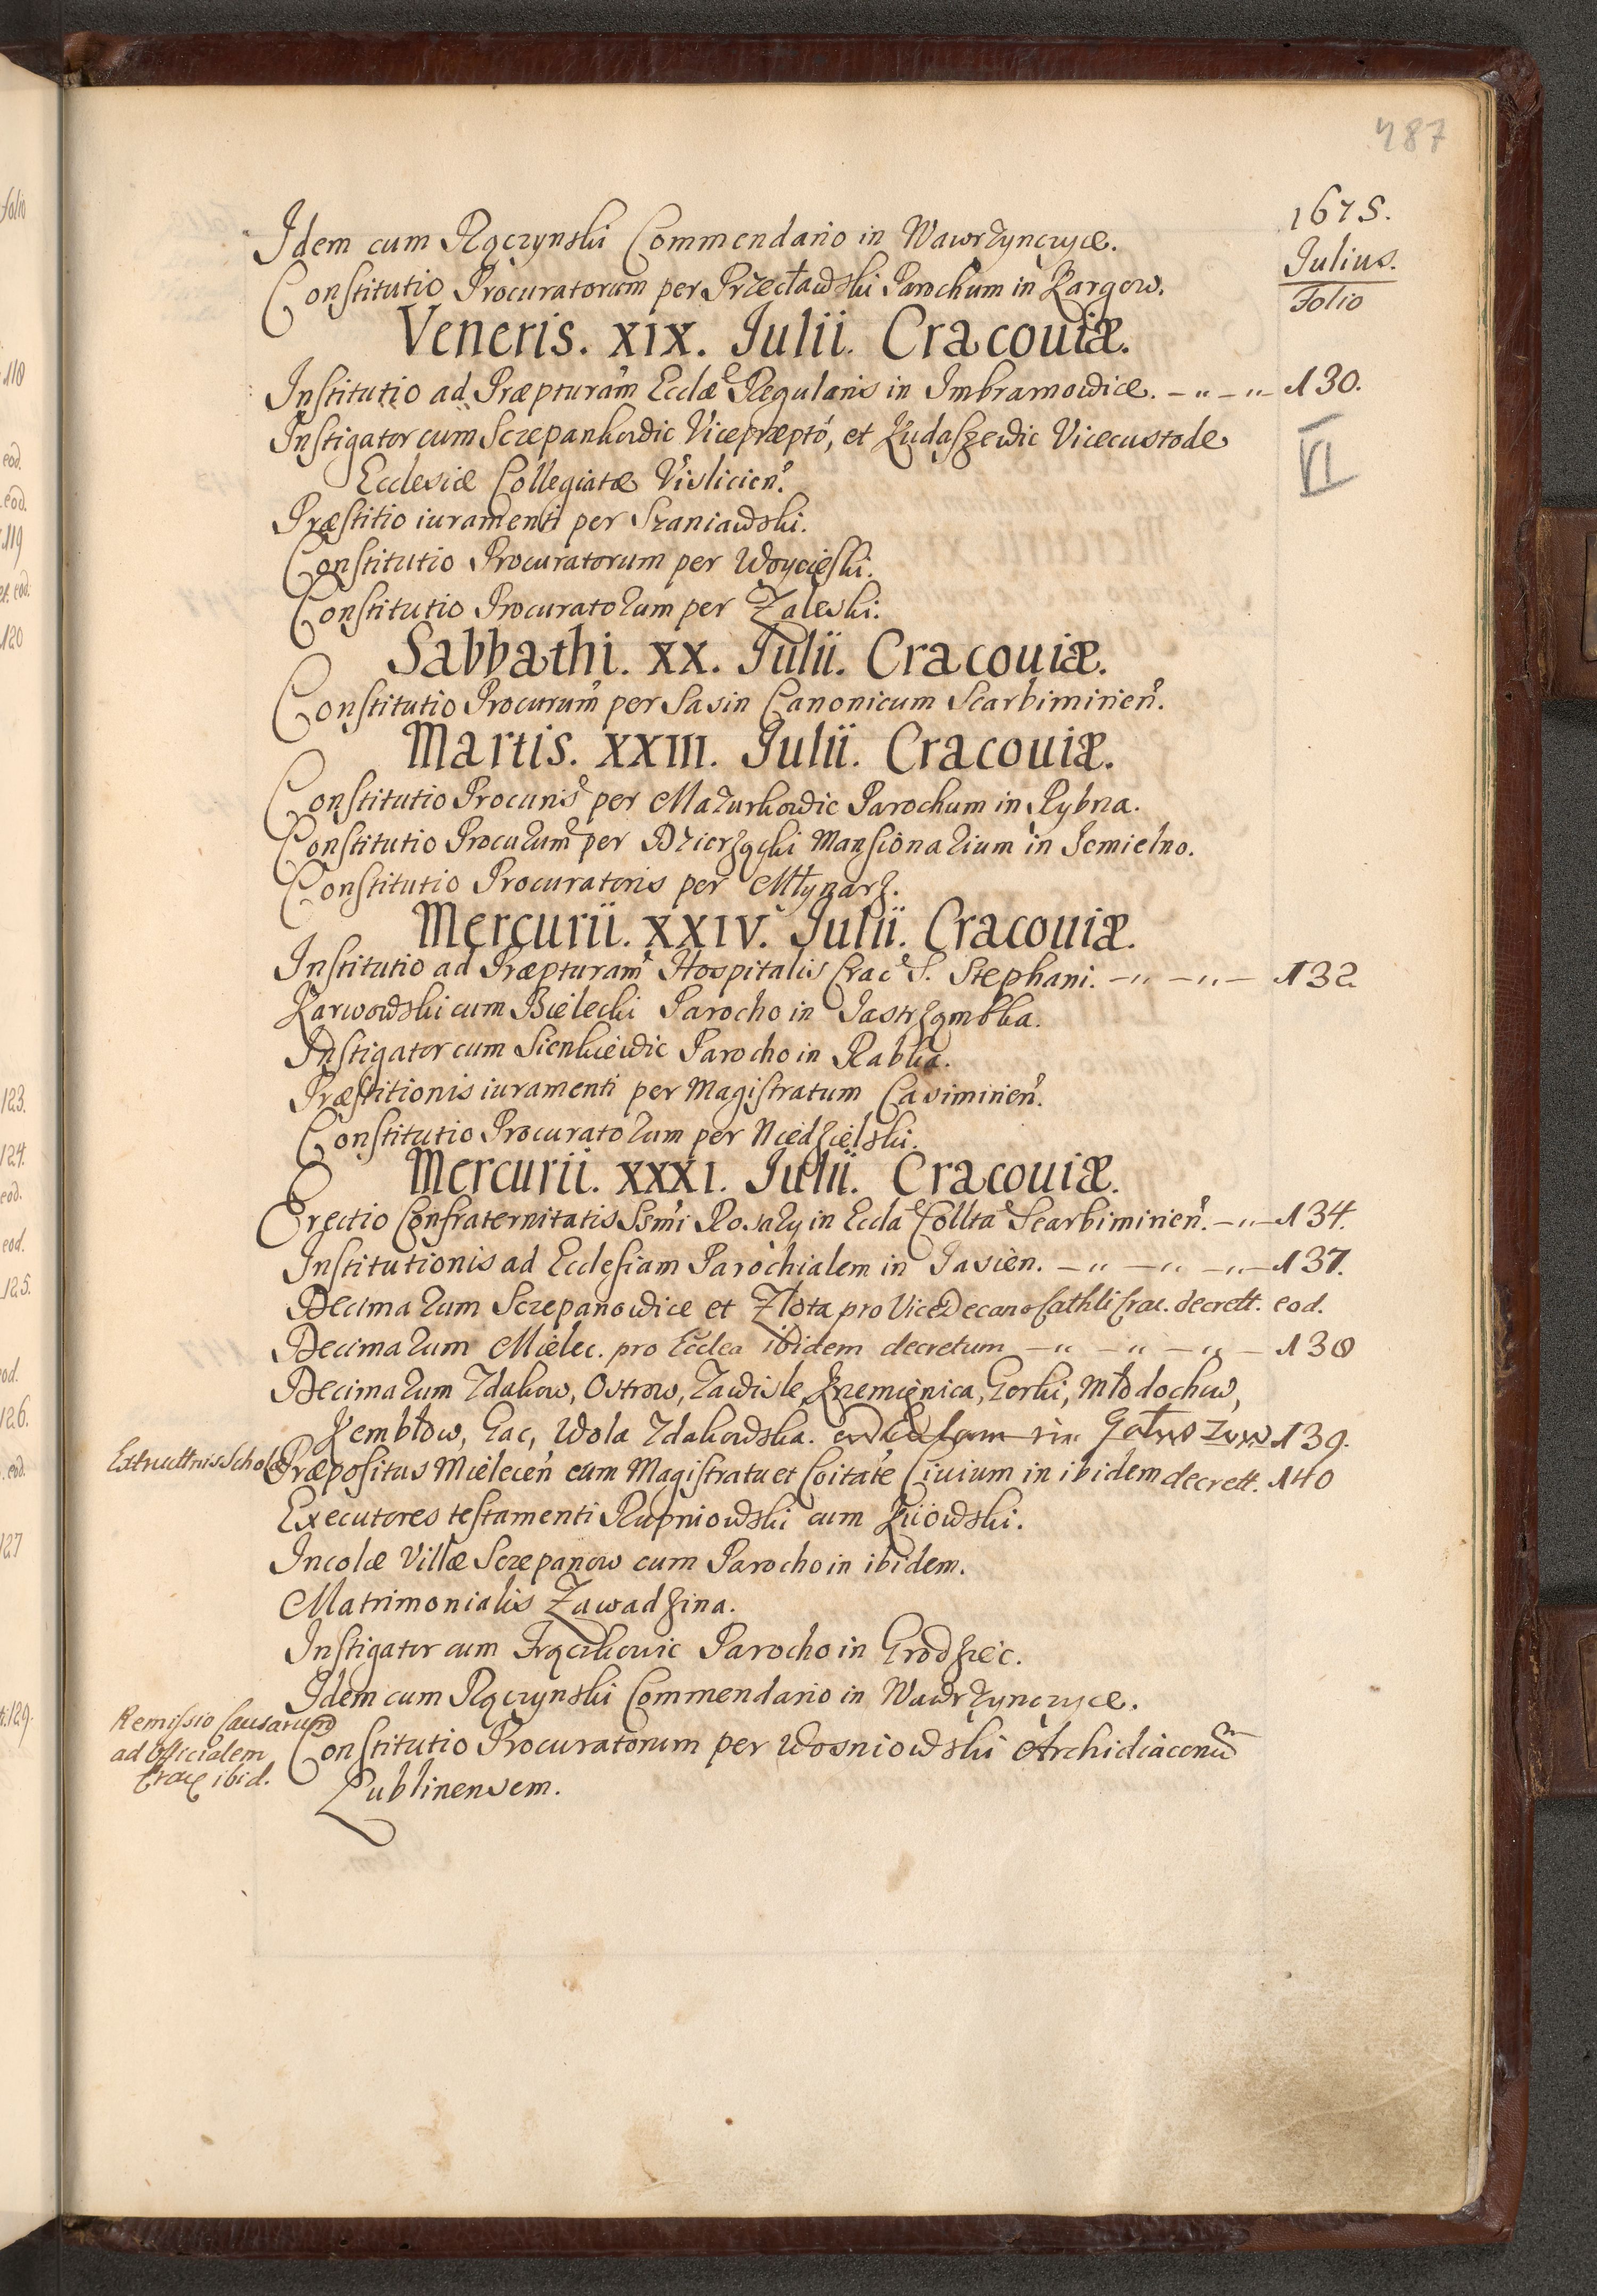 487
1675.
Julius.
Folio
Idem cum Rączynski Commendario in Wawrzynczyce.
Constitutio Procuratorum per Przecławski Parochum in Kargow.
Veneris. XIX. Julii. Cracouiæ.
Institutio ad Præpturam Ecclæ Regularis in Imbramowice. - „ - „ - 130.
VI
Instigator cum Sczepankowic Vicepræpto, et Ludaszewic Vicecustode
Ecclesiæ Collegiatæ Vislicien.
Præstitio iuramenti per Szaniawski.
Constitutio Procuratorum per Woycieski.
Constitutio Procuratorum per Zaleski.
Sabbathi. XX. Julii. Cracouiæ.
Constitutio Procurum per Sasin Canonicum Scarbimirien.
Martis. XXIII. Julii. Cracouiæ.
Constitutio Procuris per Mazurkowic Parochum in Rybna.
Constitutio Procurum per Dzierzącki Mansionarium in Jemielno.
Constitutio Procuratoris per Młynarz.
Mercurii. XXIV. Julii. Cracouiæ.
Institutio ad Præpturam Hospitalis Crac S. Stephani. - „ - „ - 132
Karwowski cum Bielecki Parocho in Jastrząmbka.
Instigator cum Sienkiewic Parocho in Rabka.
Præstitionis iuramenti per Magistratum Casimirien.
Constitutio Procuratorum per Niedzielski.
Mercurii. XXXI. Julii. Cracouiæ.
Erectio Confraternitatis Ssmi Rosary in Eccla Collta Scarbimirien. - „ - 134.
Institutionis ad Ecclesiam Parochialem in Jasien. - „ - „ - „ - 137.
Decimarum Sczepanowice et Złota pro Vice Decano Cathli Crac. decrett. eod.
Decimarum Mielec. pro Ecclea ibidem decretum - „ - „ - „ - 138
Decimarum Zdakow, Ostrow, Zawisle, Krzemienica, Gorki, Młodochow,
Kembłow, Gac, Wola Zdakowska. 139.
Extructionis Scholæ
Præpositus Mielecen cum Magistratu et Coitate Ciuium in ibidem decrett. 140
Executores testamenti Rupniowski cum Kiiowski.
Incolæ Villæ Sczepanow cum Parocho in ibidem.
Matrimonialis Zawadzina.
Instigator cum Frączkowic Parocho in Grodziec.
Idem cum Rączynski Commendario in Wawrzynczyce.
Remissio Causarum
ad Officialem
ibid.
Constitutio Procuratorum per Wosniowski Archidiaconu
Lublinensem.